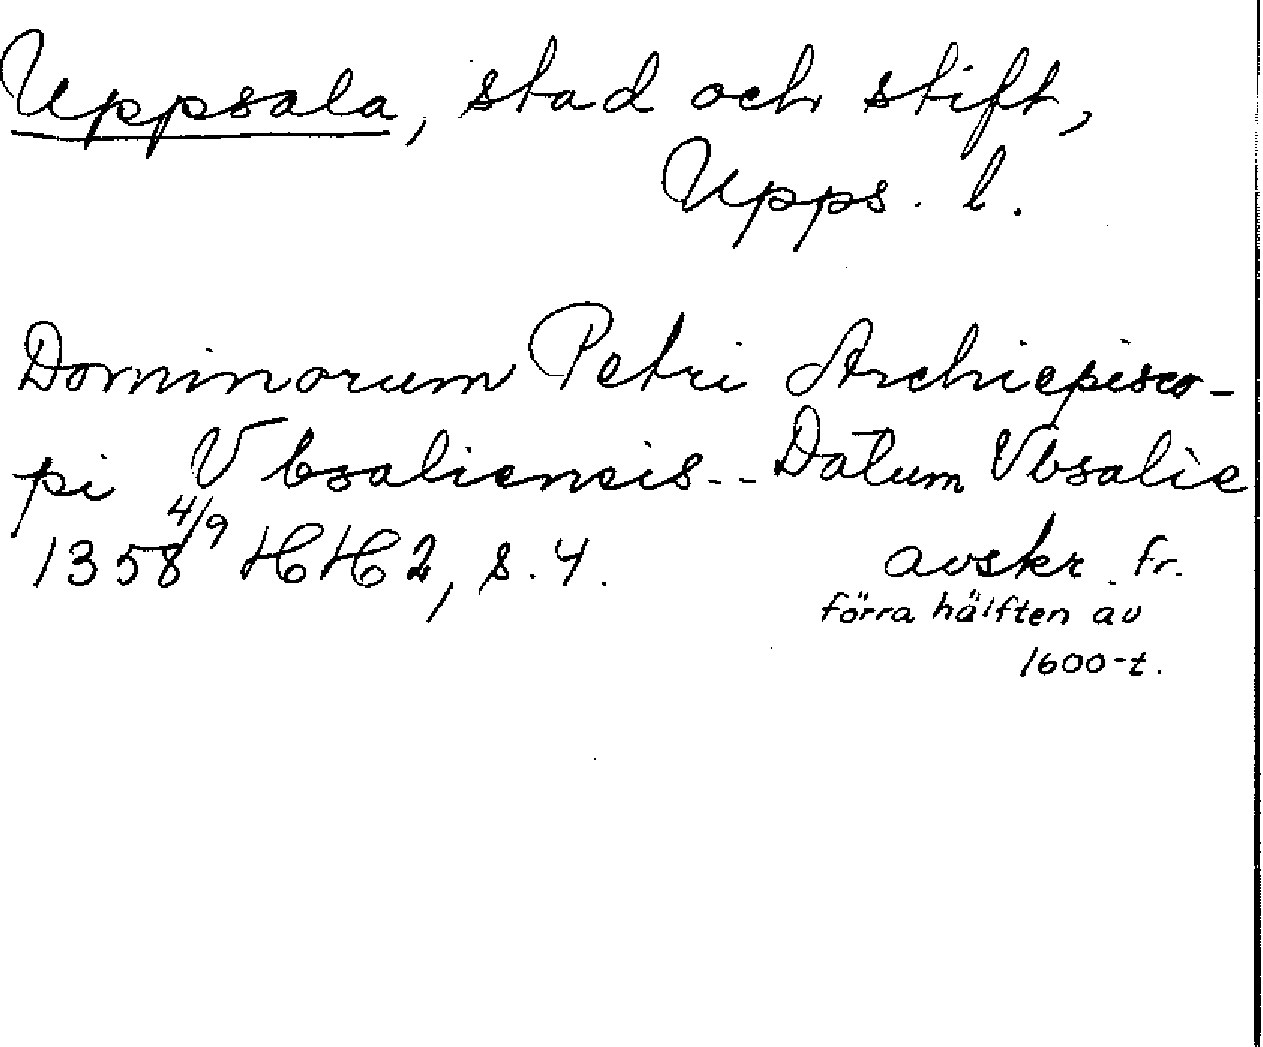 Uppsala, stad och stift,
Upps. l.
Dominorum Petri Archiepisco-
pi Vbsaliensis-- Datum Vbsalie
1358 4/9 HH 2, s. 4. avskr. fr.
förra hälften av
1600-t.